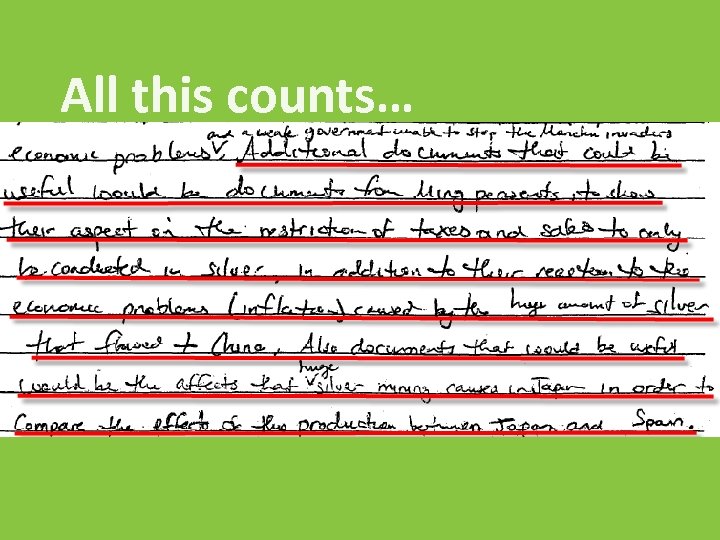 All this counts...
and a weak government unable to stop the Manchu invaders
economic problems. Additional documents that could be
useful would be documents from Ming peasants, to show
their aspect on the restriction of taxes and sales to only
be conducted in silver, in addition to their reaction to the
economic problems (inflation) caused by the huge amount of silver
that flowed to China. Also documents that would be useful
huge
would be the affects that silver mining caused in Japan in order to
Compare the effects of this production between Japan and Spain.